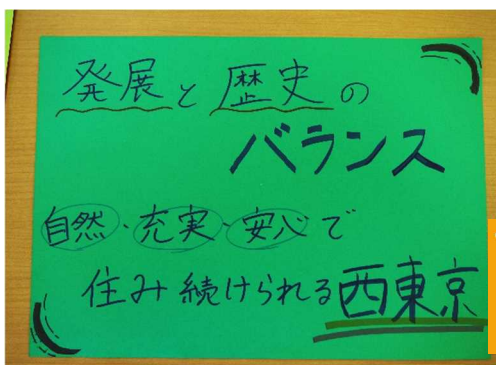 発展と歴史の
バランス
自然・充実・安心で
住み続けられる西東京